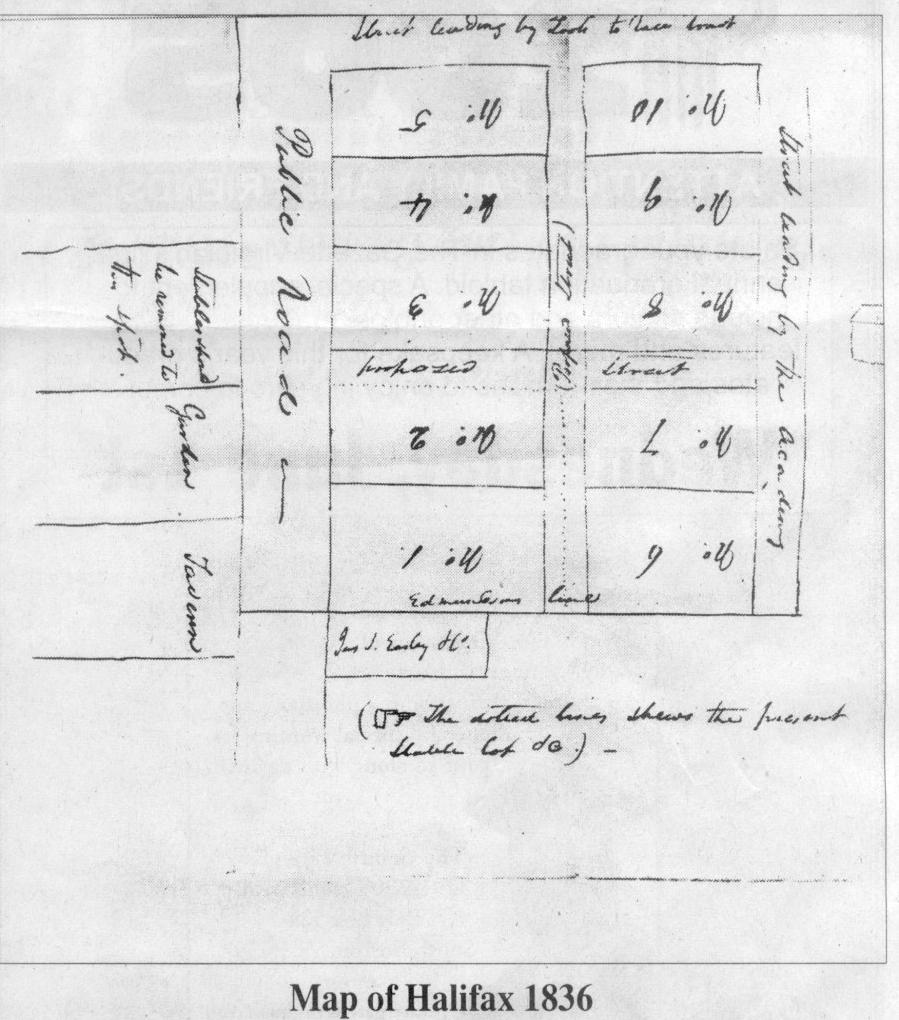 Street leading by to Race tract
No. 5
No. 10
No. 4
No. 9
No. 3
No. 8
proposed Street
No. 2
No. 7
No. 1
No. 6
Edmundsons line
Public Road
(Proposed Street)
Street leading by the Academy
Stable shed
be removed to
this Spot.
Garden
Tavern
Jas. S. Easley &Co.
(☞ The dotted lines shews the present
Stable Lot &c.) —
Map of Halifax 1836